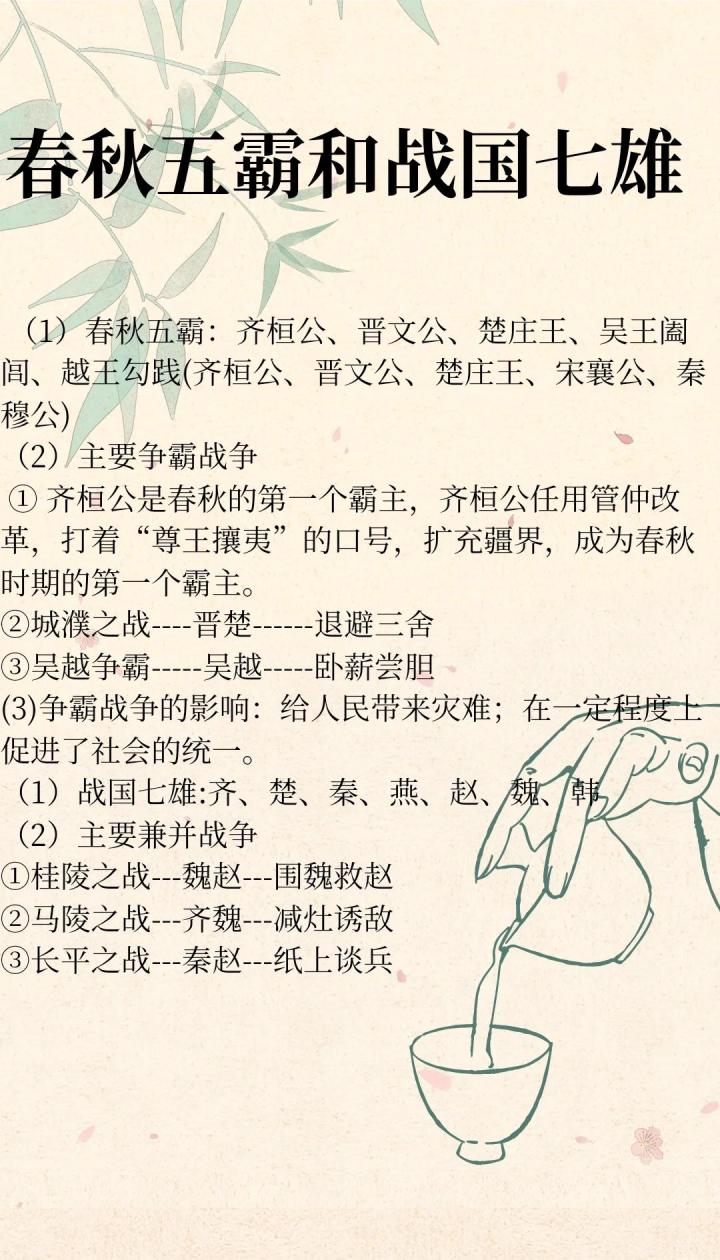 春秋五霸和战国七雄
（1）春秋五霸：齐桓公、晋文公、楚庄王、吴王阖
闾、越王勾践(齐桓公、晋文公、楚庄王、宋襄公、秦
穆公)
（2）主要争霸战争
① 齐桓公是春秋的第一个霸主，齐桓公任用管仲改
革，打着“尊王攘夷”的口号，扩充疆界，成为春秋
时期的第一个霸主。
②城濮之战----晋楚------退避三舍
③吴越争霸-----吴越-----卧薪尝胆
(3)争霸战争的影响：给人民带来灾难；在一定程度上
促进了社会的统一。
（1）战国七雄:齐、楚、秦、燕、赵、魏、韩
（2）主要兼并战争
①桂陵之战---魏赵---围魏救赵
②马陵之战---齐魏---减灶诱敌
③长平之战---秦赵---纸上谈兵